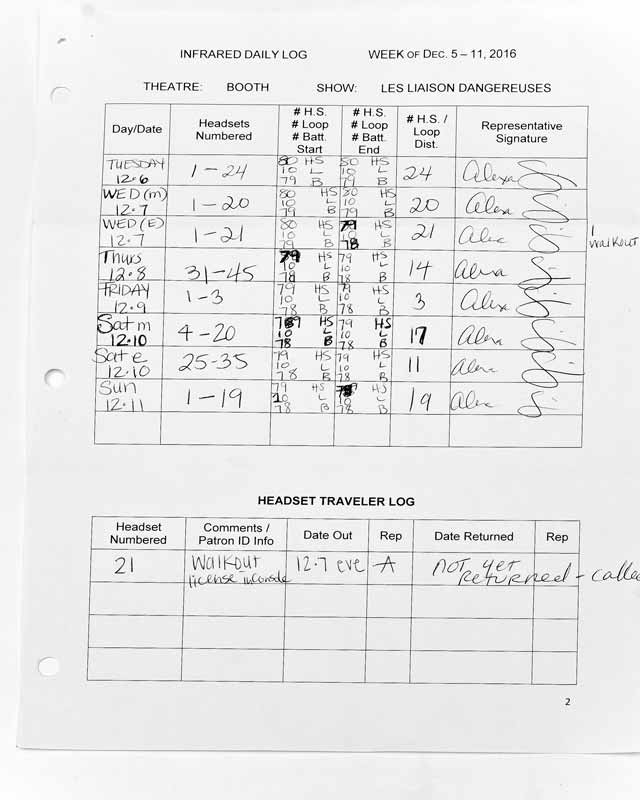 INFRARED DAILY LOG WEEK OF DEC. 5 – 11, 2016
THEATRE: BOOTH SHOW: LES LIAISON DANGEREUSES
Day/Date Headsets Numbered # H.S. # Loop # Batt. Start # H.S. # Loop # Batt. End # H.S. / Loop Dist. Representative Signature
TUESDAY 12.6 1-24 80 HS 10 L 79 B 80 HS 10 L 79 B 24 Alexa
WED (m) 12.7 1-20 80 HS 10 L 79 B 80 HS 10 L 79 B 20 Alexa
WED (E) 12.7 1-21 80 HS 10 L 79 B 79 HS 10 L 78 B 21 Alexa 1 walkout
Thurs 12.8 31-45 79 HS 10 L 78 B 79 HS 10 L 78 B 14 Alexa
FRIDAY 12.9 1-3 79 HS 10 L 78 B 79 HS 10 L 78 B 3 Alexa
Sat m 12.10 4-20 79 HS 10 L 78 B 79 HS 10 L 78 B 17 Alexa
Sat e 12.10 25-35 79 HS 10 L 78 B 79 HS 10 L 78 B 11 Alexa
Sun 12.11 1-19 79 HS 10 L 78 B 79 HS 10 L 78 B 19 Alexa
HEADSET TRAVELER LOG
Headset Numbered Comments / Patron ID Info Date Out Rep Date Returned Rep
21 Walkout license in console 12.7 eve A not yet returned - called
2